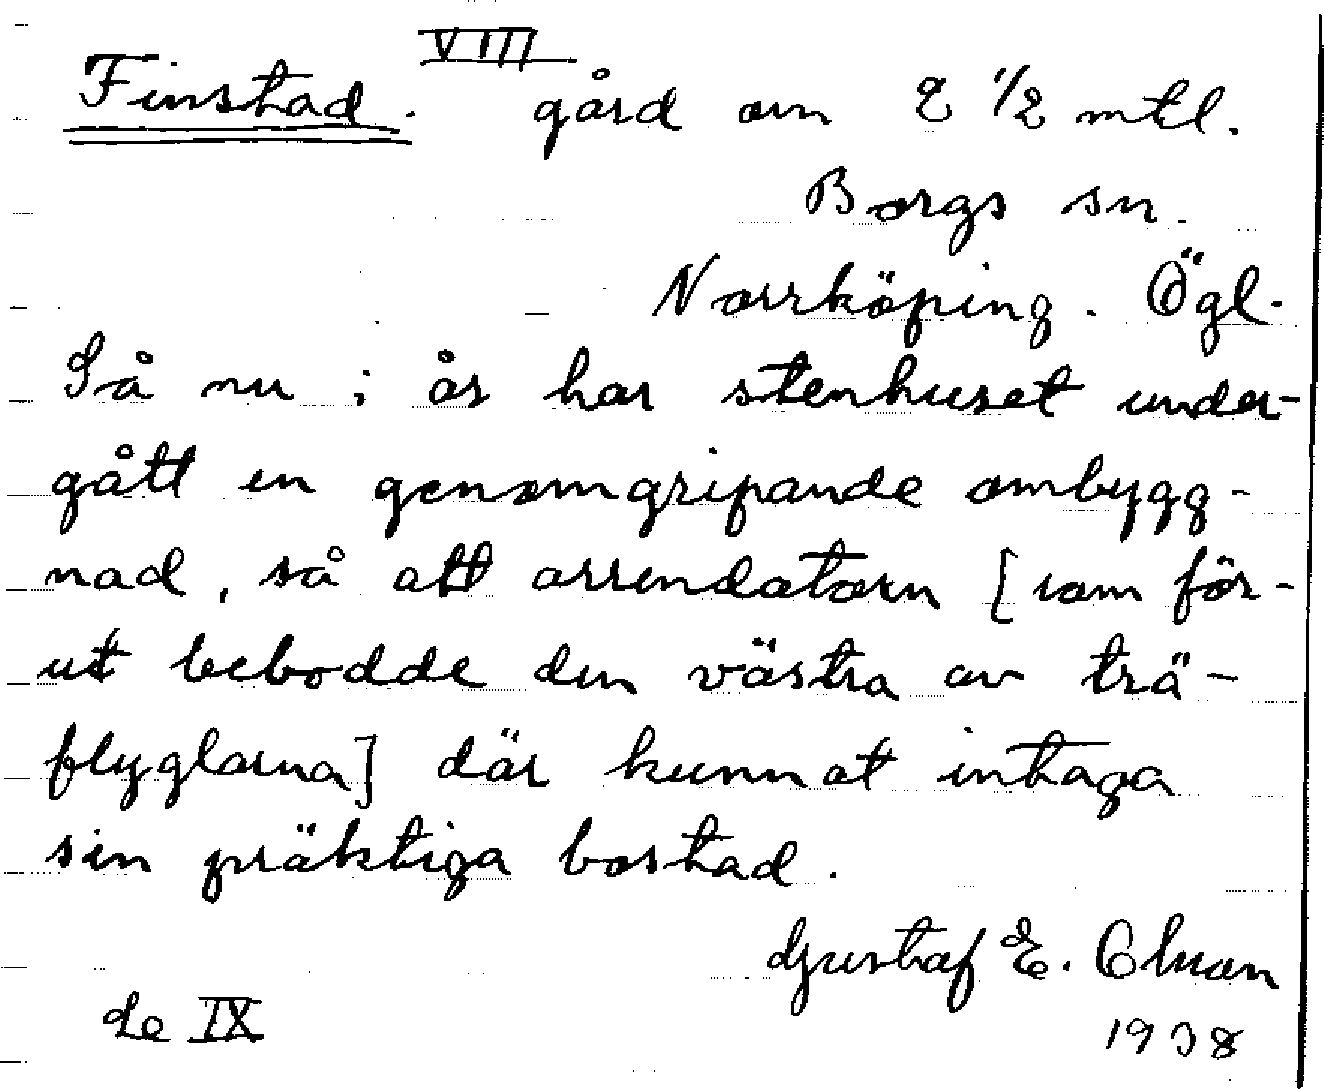 VIII
Finstad. gård om 2 1/2 mtl.
Borgs sn.
Norrköping. Ögl.
Så nu i år har stenhuset under-
gått en genomgripande ombygg-
nad, så att arrendatorn [som för-
ut bebodde den västra av trä-
flyglarna] där kunnat intaga
sin präktiga bostad.
Gustaf E. Olsson
Se IX
1938